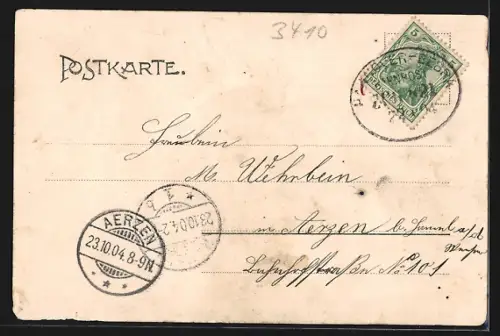 3410
POSTKARTE.
5
Fräulein
M. Wehrbein
in Aerzen b. Hameln a/d
Weser
Bahnhofstraße No 101
AERZEN
23.10.04.8-9N.
23.10.04.